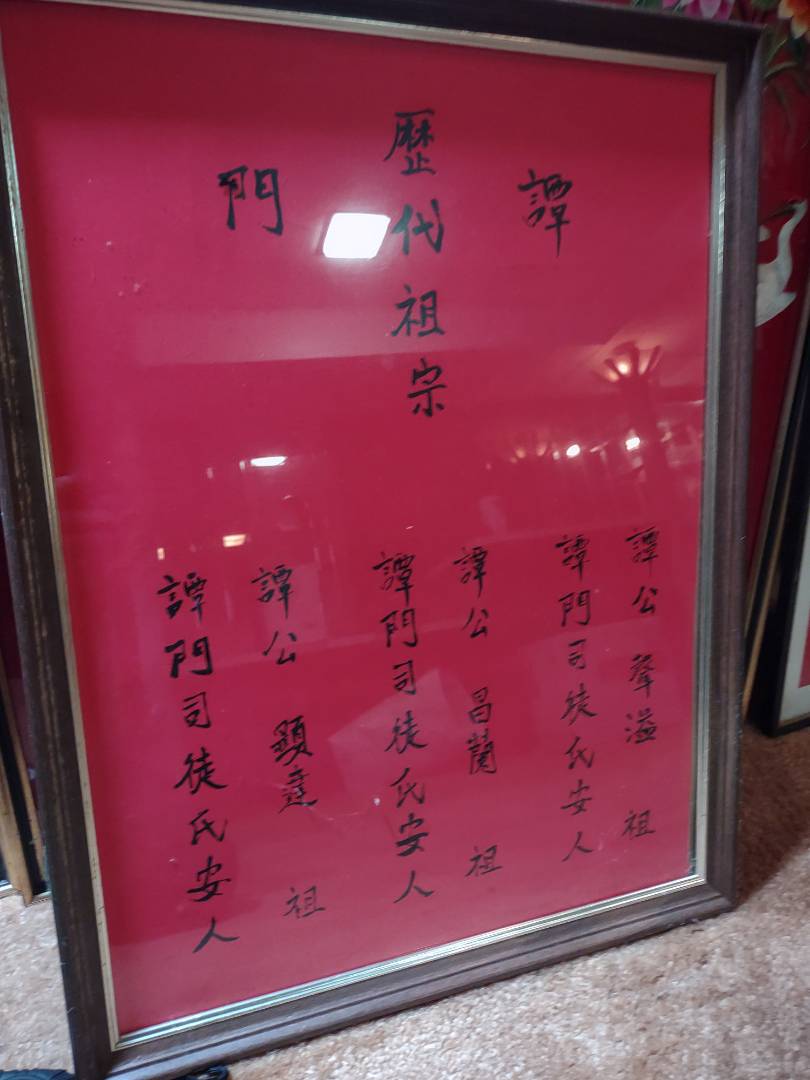 譚門
歷代祖宗
譚公聲溢祖
譚門司徒氏安人
譚公昌蘭祖
譚門司徒氏安人
譚公顯達祖
譚門司徒氏安人